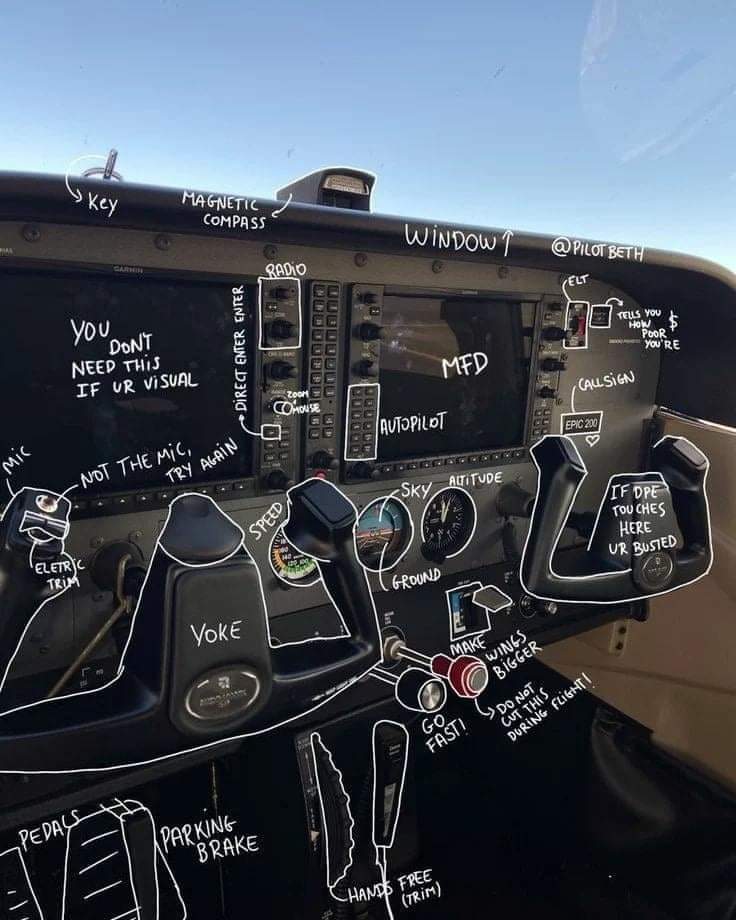 KEY
MAGNETIC
COMPASS
WINDOW ↑
@PILOTBETH
GARMIN
RADIO
ELT
TELLS YOU
HOW $
POOR
YOU'RE
YOU
DON'T
NEED THIS
IF UR VISUAL
DIRECT ENTER ENTER
MFD
ZOOM
MOUSE
AUTOPILOT
CALLSIGN
EPIC 200
MIC
NOT THE MIC,
TRY AGAIN
SPEED
SKY
ALTITUDE
GROUND
IF DPE
TOUCHES
HERE
UR BUSTED
ELETRIC
TRIM
YOKE
MAKE
WINGS
BIGGER
GO
FAST!
DO NOT
CUT THIS
DURING FLIGHT!
PEDALS
PARKING
BRAKE
HANDS FREE
(TRIM)